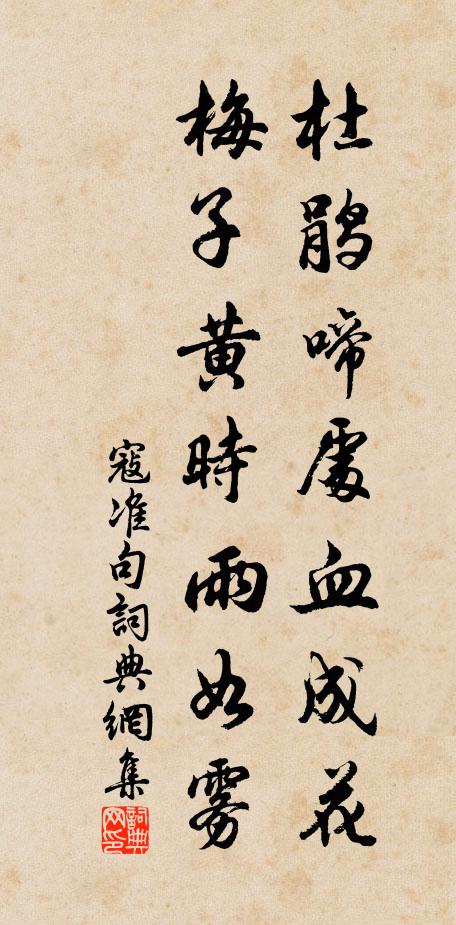 杜鹃啼處血成花
梅子黄時雨如雾
寇准句詞典網集
詞典网印